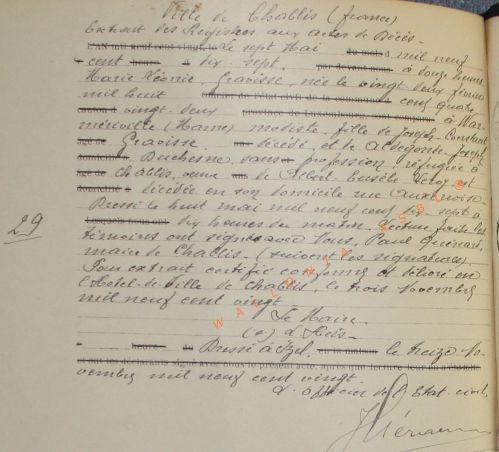 Ville de Chablis (france)
Extrait des Registres aux actes de Décès.
L'AN mil neuf cent vingt, le Le sept Mai du mois d mil neuf
cent heure dix sept, par devant nous à douze heures
Marie Léonie, Gravisse, née le vingt deux février
mil huit officier de l'état civil de la commune d cent quatre
canton d vingt deux province de Luxembourg est comparu à War
mériville (Marne) modiste, fille de Joseph Constant
âgé de Gravisse, décédé, et de Aldegonde Joseph
domicilié Duchesne sans profession réfugiée à
âgé de Chablis, veuve de Robert Eusèbe est
domicilié à décédée en son domicile rue Auxerroise
Dressé le huit mai mil neuf cent dix sept à
Lesquels nous ont dix heures du matin. Lecture faite les
29
témoins ont signé avec Nous, Paul
maire de Chablis. (suivent les signatures)
Pour extrait certifié conforme et délivré en
l'Hotel de Ville de Chablis, le trois Novembre
mil neuf cent vingt.
Le Maire.
(s)
heure Dressé à Izel, du matin le treize No-
et ont les déclarants signé avec nous le présent acte, après que lecture leur en a été faite
vembre mil neuf cent vingt.
L'officier de l'Etat civil,
WALLONIA ASBL ©